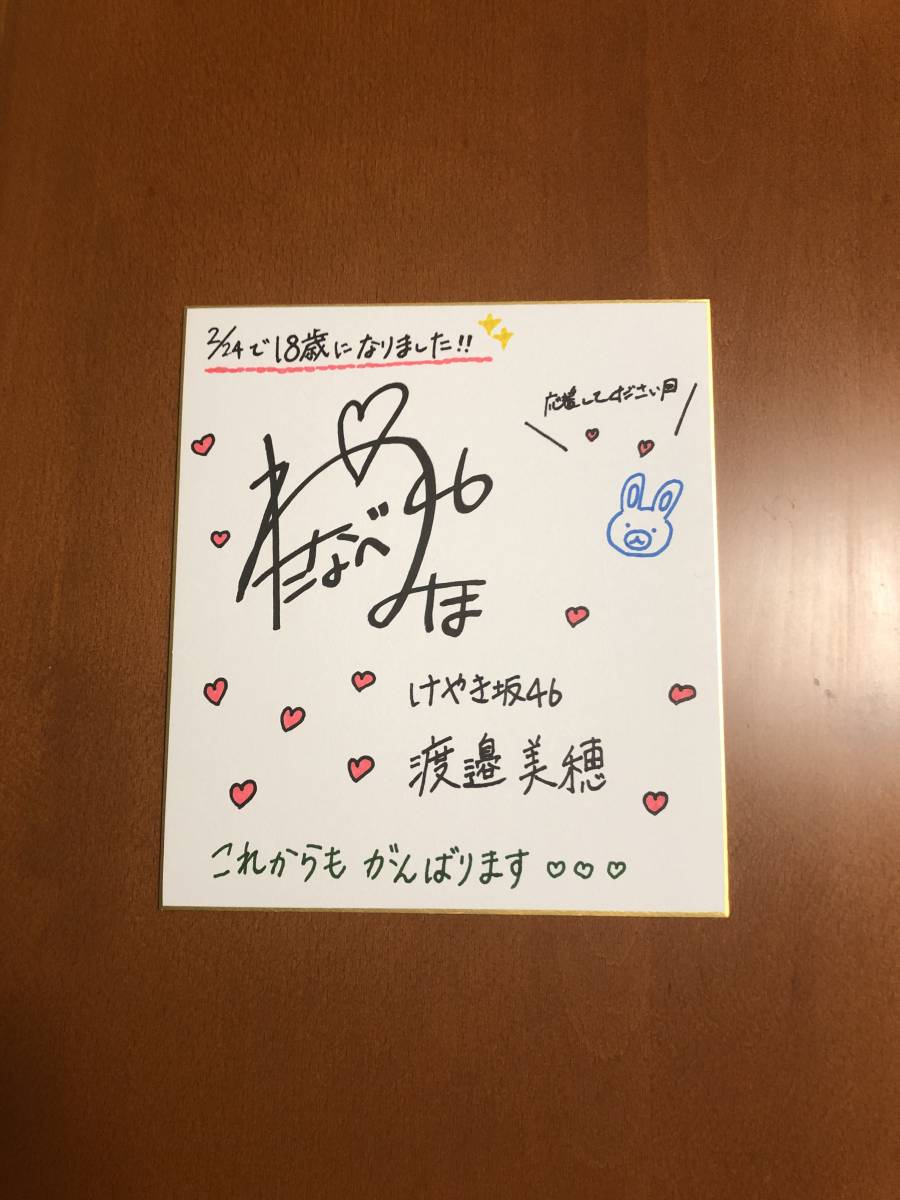 2/24で18歳になりました!!
応援してください
わたなべ
みほ
46
けやき坂46
渡邉美穂
これからも がんばります ♡♡♡